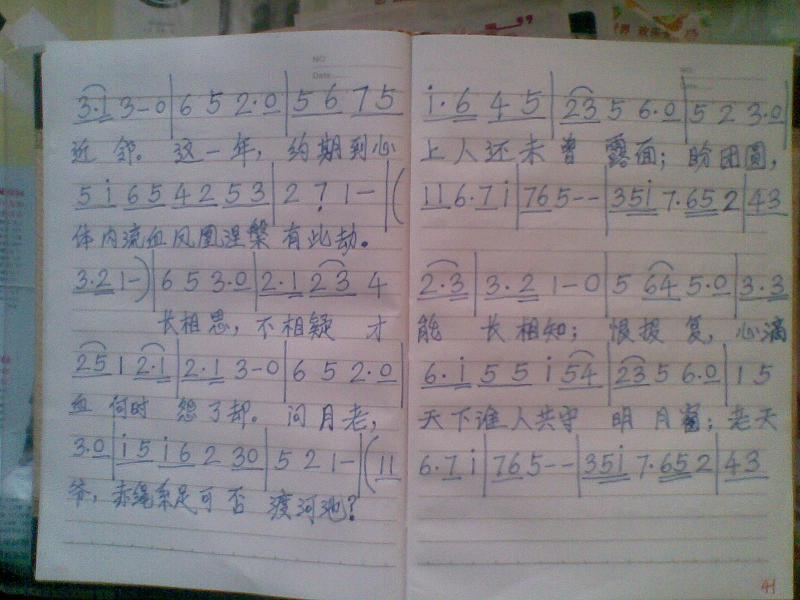 NO
Date
3·1 3–0|6 5 2·0|5 6 7 5
i·6 4 5|23 5 6·0|5 2 3·0|
近邻。这一年，约期到心
上人还未曾露面；盼团圆，
5 i 6 5 4 2 5 3|2 7 1–|(
11 6·7 i|76 5––|35i 7·65 2|43
体内流血凤凰涅槃有此劫。
3·2 1–)|6 5 3·0|2·1 23 4
2·3|3·2 1–0|5 64 5·0|3·3
长相思，不相疑 才
能 长相知；恨报复，心滴
25 1 2·1|2·1 3–0|6 5 2·0|
6·i 5 5 i 54|23 5 6·0|1 5
血 何时 怨了却。问月老，
天下谁人共守 明月窗；老天
3·0|i 5 i 6 2 30|5 2 1–|(11
6·7 i|76 5––|35i 7·65 2|43
爷，赤绳系足可否 渡河池？
41